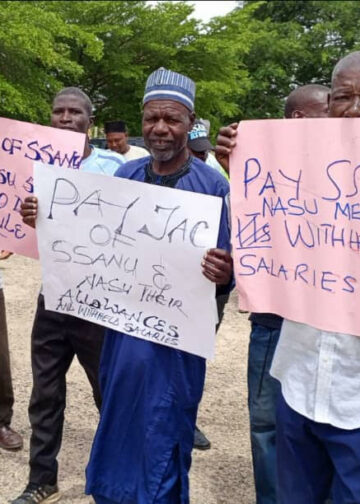 OF SSANU
PAY JAC
OF
SSANU &
NASU THEIR
ALLOWANCES
AND WITHHELD SALARIES
PAY SS
NASU ME
WITHHE
SALARIES